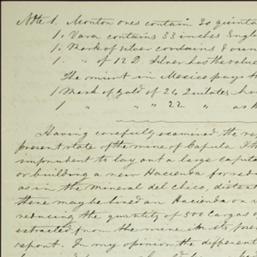 Note 1. Monton ores contain 30 quinta
1. Vara contains 33 inches Engl
1. Mark of silver contains 8 oun
1. " of 12 D. silver has the value
The mint in Mexico pays
1 Mark of gold of 24 Quilates ha
1 " " " 22 " as
Having carefully examined the
present state of the mine of Capula I th
imprudent to lay out a large capita
or building a new Hacienda for red
as in the Mineral del Chico, distan
there may be hired an Hacienda on
reducing the quantity of 500 Cargas
extracted from the mine in its pres
report. In my opinion the different